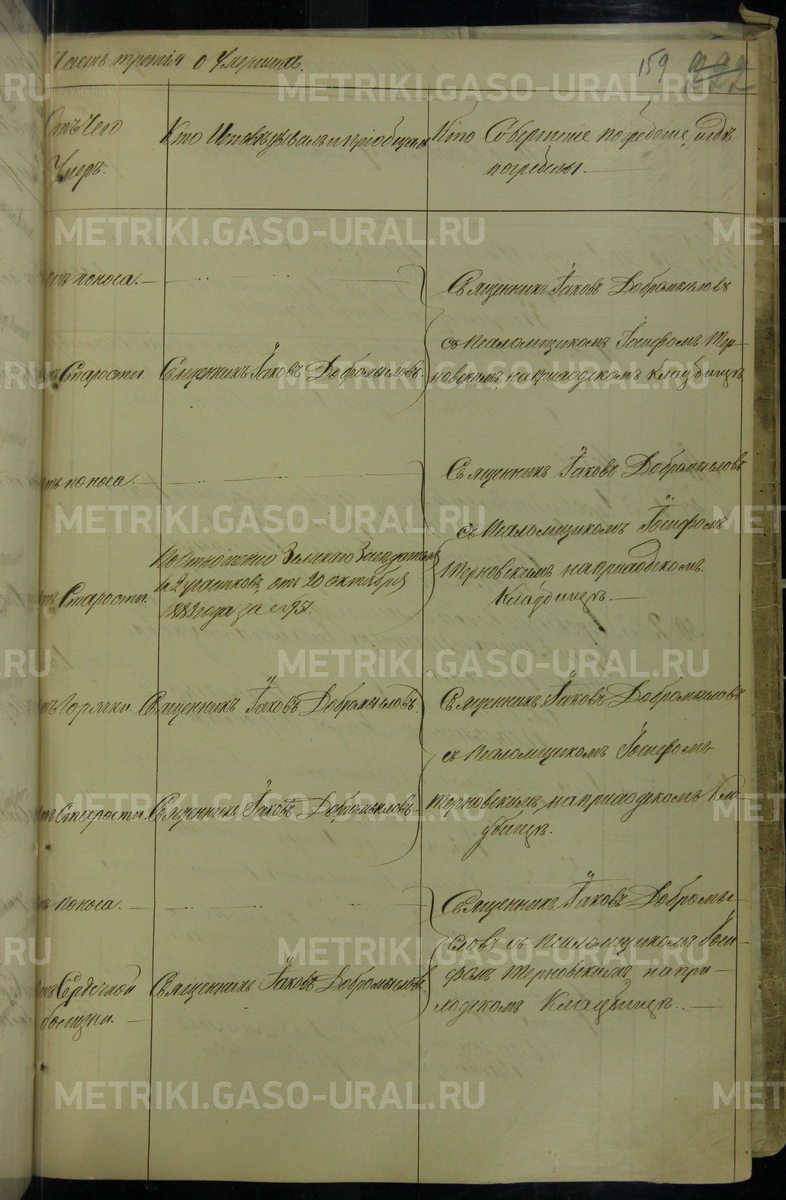 Часть третія о умершихъ.
159
Отъ чего
Умеръ.
Кто Исповѣдывалъ и пріобщалъ
Кто Совершалъ погребеніе, и гдѣ
погребены.
отъ поноса.
Священникъ Іаковъ Добромысловъ
съ Псаломщикомъ Іосифомъ Тер-
новскимъ на приходскомъ Кладбищѣ
отъ Старости
Священникъ Іаковъ Добромысловъ.
отъ поноса.
Священникъ Іаковъ Добромысловъ
съ Псаломщикомъ Іосифомъ
Терновскимъ на приходскомъ
Кладбищѣ.
отъ Старости.
По Отношенію Земскаго Засѣдателя
2 участка, отъ 20 октября
года за № 951.
отъ Горячки.
Священникъ Іаковъ Добромысловъ
Священникъ Іаковъ Добромысловъ
съ Псаломщикомъ Іосифомъ
Терновскимъ на приходскомъ Кла-
дбищѣ.
отъ Старости.
Священникъ Іаковъ Добромысловъ
отъ поноса.
Священникъ Іаковъ Добромы-
словъ съ Псаломщикомъ Іоси-
фомъ Терновскимъ на при-
ходскомъ Кладбищѣ.
отъ Сердечной
болѣзни.
Священникъ Іаковъ Добромысловъ
METRIKI.GASO-URAL.RU